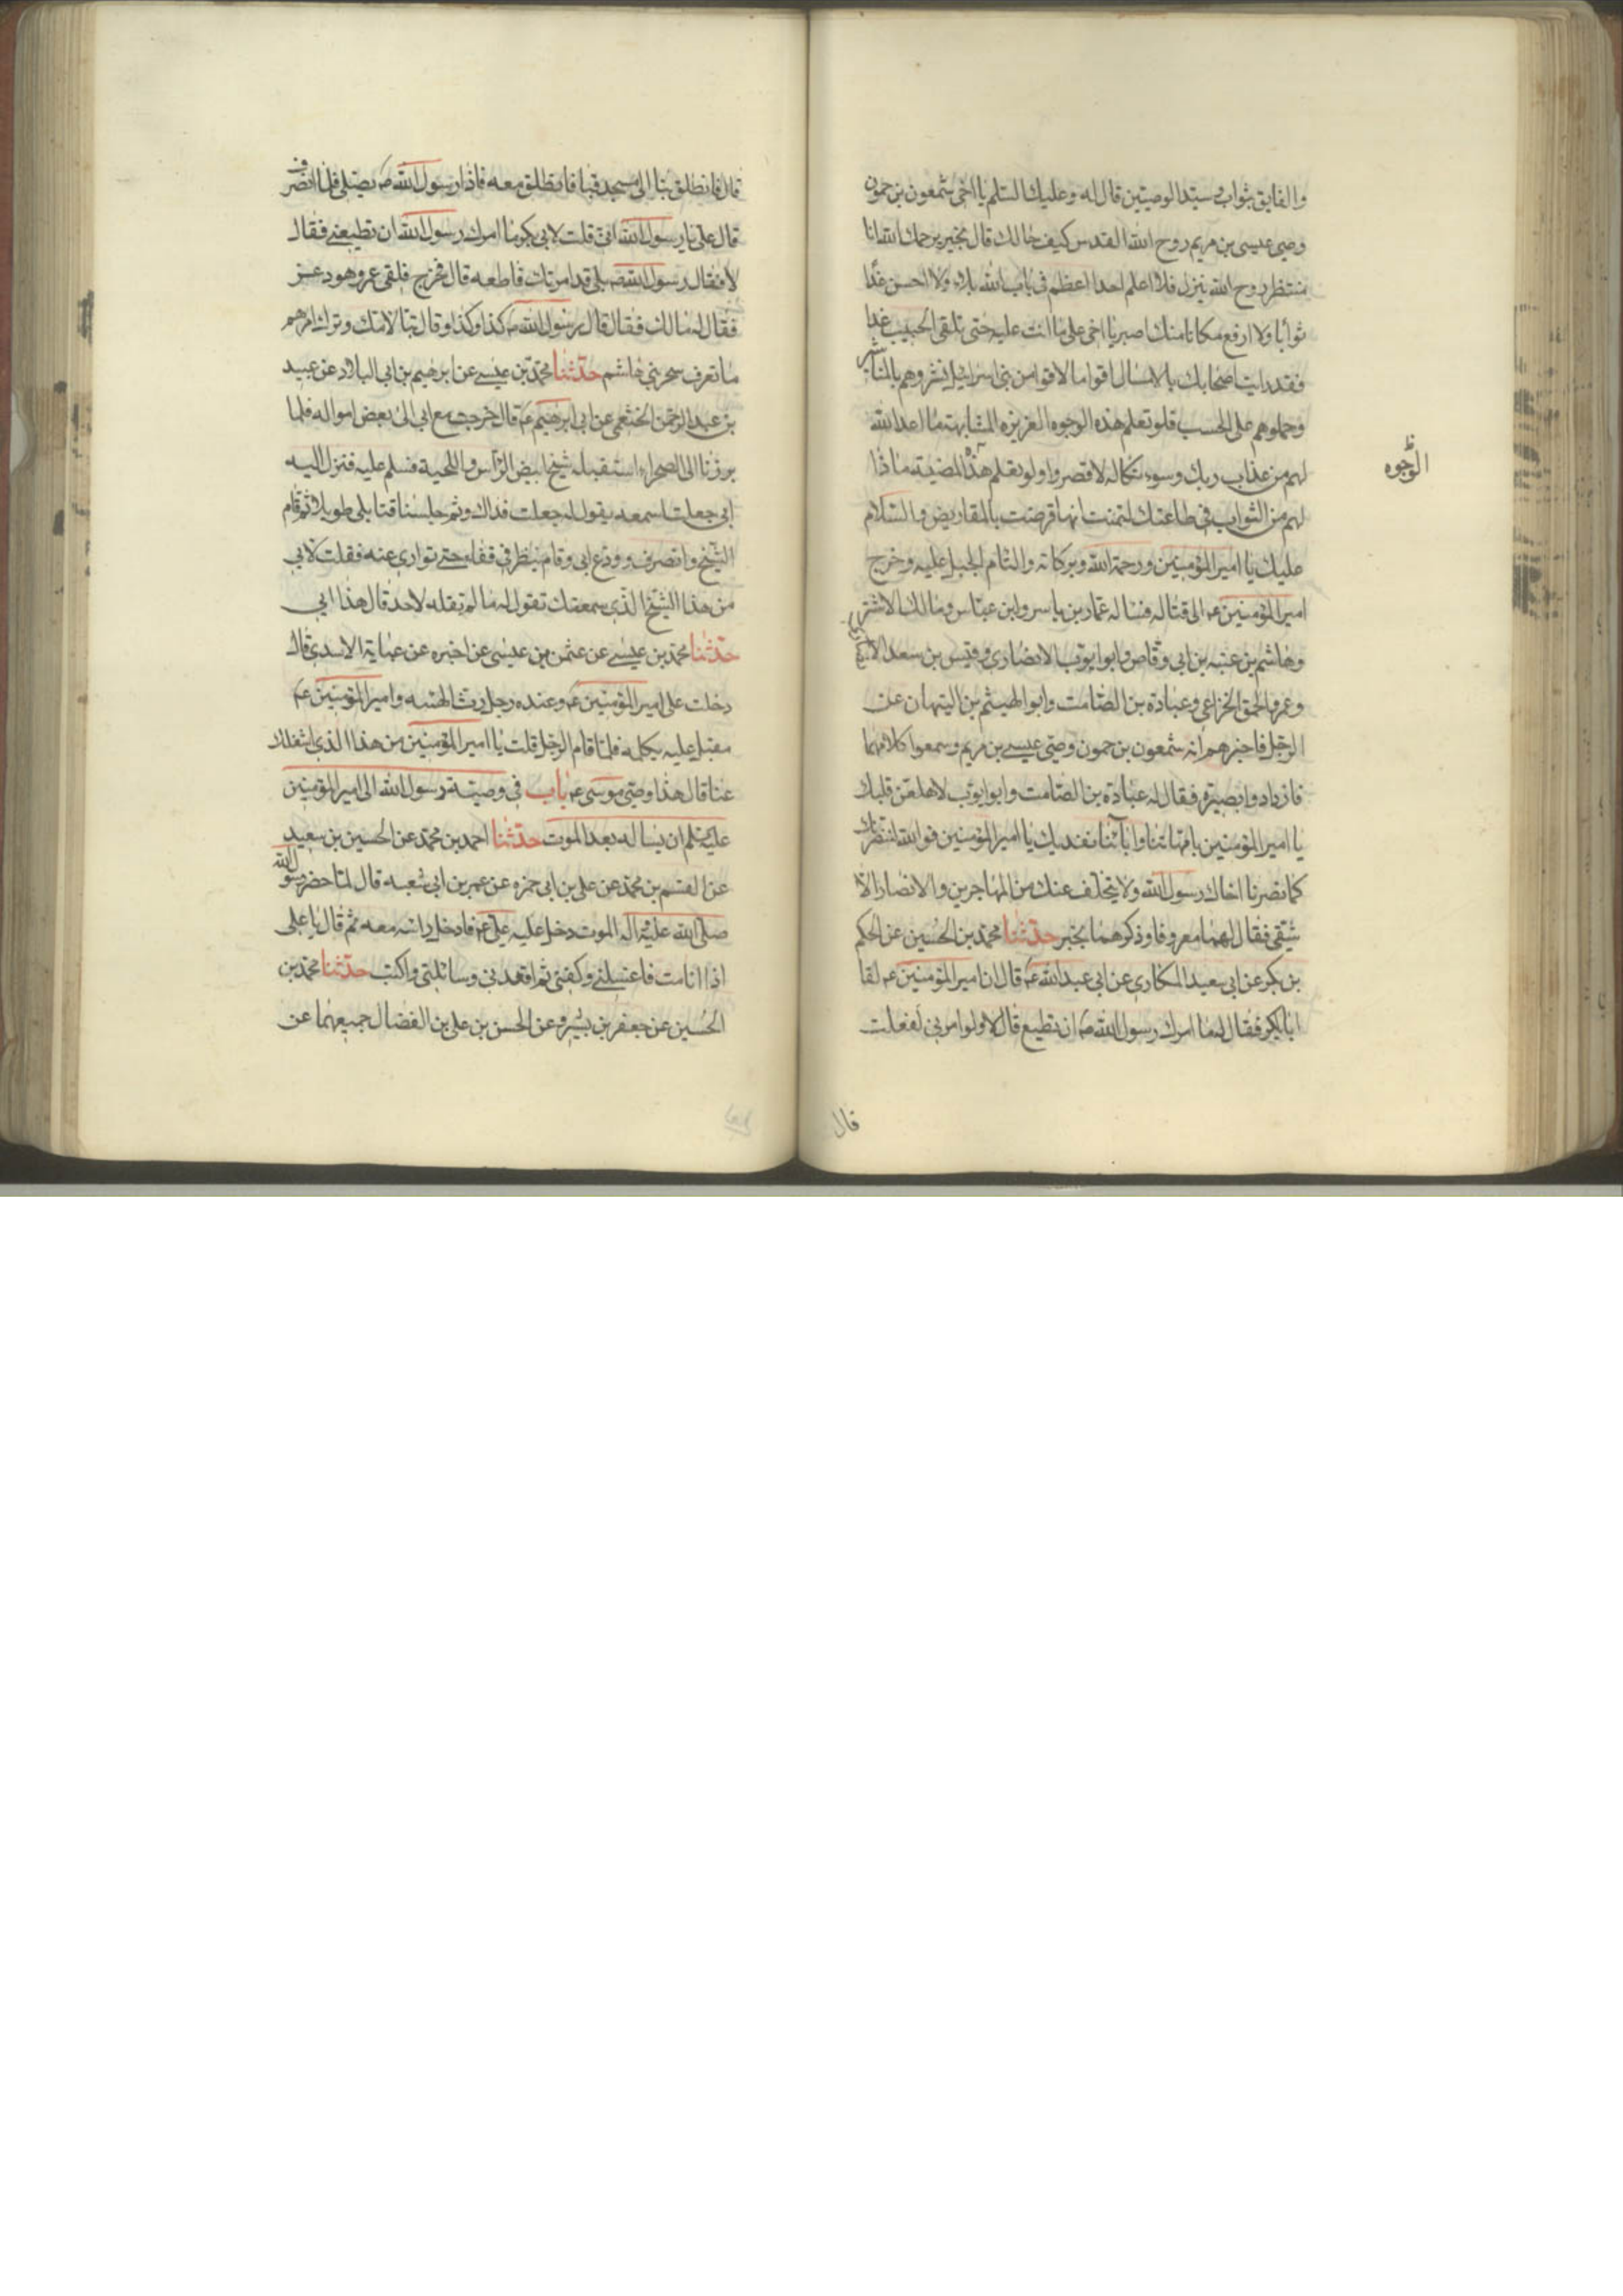 والفايق بثواب وسيد الوصيين قال له وعليك السلم يا اخى شمعون بن حمون
وصى عيسى بن مريم روح الله القدس كيف حالك قال بخير يرحمك الله انا
منتظر روح الله ينزل فلا اعلم احدا اعظم فى باب الله بلاء ولا احسن غدا
ثوابا ولا ارفع مكانا منك اصبر يا اخى على ما انت عليه حتى تلقى الحبيب غدا
فقد رايت اصحابك بالامس الاقواما لاقوا من بنى اسرائيل نشروهم بالمناشير
وحملوهم على الخشب فلو تعلم هذه الوجوه العزيزه المشابهة ما اعد الله
الوجوه ظ
لهم من عذاب ربك وسوء نكاله لاقصروا ولو تعلم هذه المضيئة ماذا
لهم من الثواب فى طاعتك لتمنت انها قرضت بالمقاريض والسلام
عليك يا امير المؤمنين ورحمة الله وبركاته والتام الجبل عليه وخرج
امير المؤمنين ع الى قتاله فساله عمار بن ياسر وابن عباس ومالك الاشتر
وهاشم بن عتبه بن ابى وقاص وابو ايوب الانصارى وقيس بن سعد الانصارى
وعمرو الحمق الخزاعى وعبادة بن الصامت وابو الهيثم بن التيهان عن
الرجل فاخبرهم انه شمعون بن حمون وصى عيسى بن مريم وسمعوا كلامهما
فازدادوا بصيرة فقال له عبادة بن الصامت وابو ايوب لا هلعن قلبك
يا امير المؤمنين بامهاتنا وابآئنا نفديك يا امير المؤمنين فوالله لننصرنك
كما نصرنا اخاك رسول الله ولا يتخلف عنك من المهاجرين والانصار الا
شقى فقال لهما معروفا وذكرهما بخير حدثنا محمد بن الحسين عن الحكم
بن بكر عن ابى سعيد المكارى عن ابى عبد الله ع قال ان امير المؤمنين ع لقا
ابا بكر فقال له ما امرك رسول الله ص ان تطيع قال لا ولو امرنى لفعلت
قال
قال فانطلق بنا الى مسجد قبا فانطلق معه فاذا رسول الله ص يصلى فلما انصرف
قال على يا رسول الله انى قلت لابى بكر ما امرك رسول الله ان تطيعنى فقال
لا فقال رسول الله ص بلى قد امرتك فاطعه قال فخرج فلقى عمر وهو دعر
فقال له مالك فقال قال رسول الله ص كذا وكذا وقال تبا لامتك وترك امرهم
ما تعرف سحر بنى هاشم حدثنا محمد بن عيسى عن ابرهيم بن ابى البلاد عن عبيد
بن عبد الرحمن الخثعمى عن ابى ابرهيم ع قال خرجت مع ابى الى بعض امواله فلما
برزنا الى الصحراء استقبله شيخ ابيض الراس واللحية فسلم عليه فنزل اليه
ابى جعلت اسمعه يقول له جعلت فداك وثم جلسنا قتا بلى طويلا ثم قام
الشيخ وانصرف وودع ابى وقام ينظر فى قفاه حتى توارى عنه فقلت لابى
من هذا الشيخ الذى سمعتك تقول له ما لم تقله لاحد قال هذا ابى
حدثنا محمد بن عيسى عن عثمن بن عيسى عن اخبره عن عباية الاسدى قال
دخلت على امير المؤمنين ع وعنده رجل رث الهيئه وامير المؤمنين ع
مقبل عليه يكلمه فلما قام الرجل قلت يا امير المؤمنين من هذا الذى اشغلك
عنا قال هذا وصى موسى ع باب فى وصية رسول الله الى امير المؤمنين
عليه السلم ان يساله بعد الموت حدثنا احمد بن محمد عن الحسين بن سعيد
عن القسم بن محمد عن على بن ابى حمزه عن عمر بن ابى شعبه قال لما حضر رسول الله
صلى الله عليه واله الموت دخل عليه على ع فادخل راسه معه ثم قال يا على
اذا انا مت فاغسلنى وكفنى ثم اقعدنى وسائلنى واكتب حدثنا محمد بن
الحسين عن جعفر بن بشير وعن الحسن بن على بن الفضال جميعهما عن